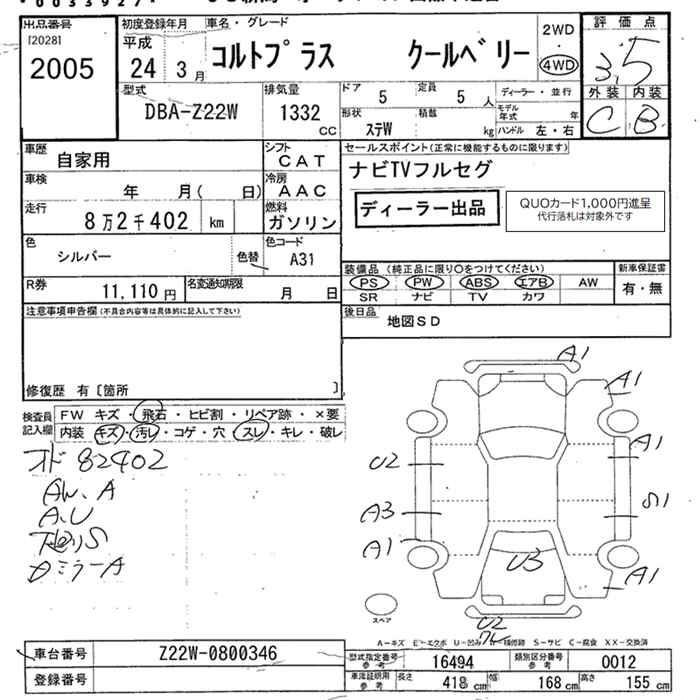 出品番号
[2028]
2005
初度登録年月
平成
24 3月
車名・グレード
コルトプラス クールベリー
2WD
4WD
評価点
3.5
外装 内装
C B
型式
DBA-Z22W
排気量
1332
cc
ドア
5
定員
5人
形状
ステW
積載
kg
ディーラー・並行
モデル年式 年
ハンドル 左・右
車歴
自家用
シフト
CAT
車検
年 月( 日)
冷房
AAC
走行
8万2千402 km
燃料
ガソリン
色
シルバー
色替
色コード
A31
R券
11,110円
名変通知期限
月 日
セールスポイント(正常に機能するものに限ります)
ナビTVフルセグ
ディーラー出品
QUOカード1,000円進呈
代行落札は対象外です
装備品(純正品に限り○をつけてください)
PS PW ABS エアB AW
SR ナビ TV カワ
新車保証書
有・無
後日品
地図SD
注意事項申告欄(不具合内容等は具体的に記入して下さい)
修復歴 有〔箇所 〕
検査員記入欄
FW キズ・飛石・ヒビ割・リペア跡・×要
内装 キズ・汚レ・コゲ・穴・スレ・キレ・破レ
オド 82402
AW、A
A、U
下回りS
ドミラーA
A1
A1
U2
A1
A3
S1
A1
U3
A1
スペア
U2
A−キズ E−エクボ U−凹み W−補修跡 S−サビ C−腐食 XX−交換済
車台番号
Z22W-0800346
登録番号
型式指定番号
参考
16494
類別区分番号
参考
0012
車洋証明用
参考
長さ
418cm
幅
168cm
高さ
155cm